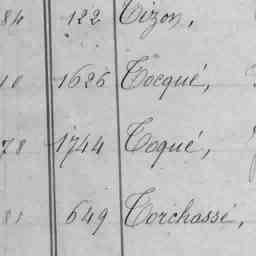 84 122 Tizon,
10 1626 Tocqué,
78 1744 Toqué,
81 649 Torchassé,